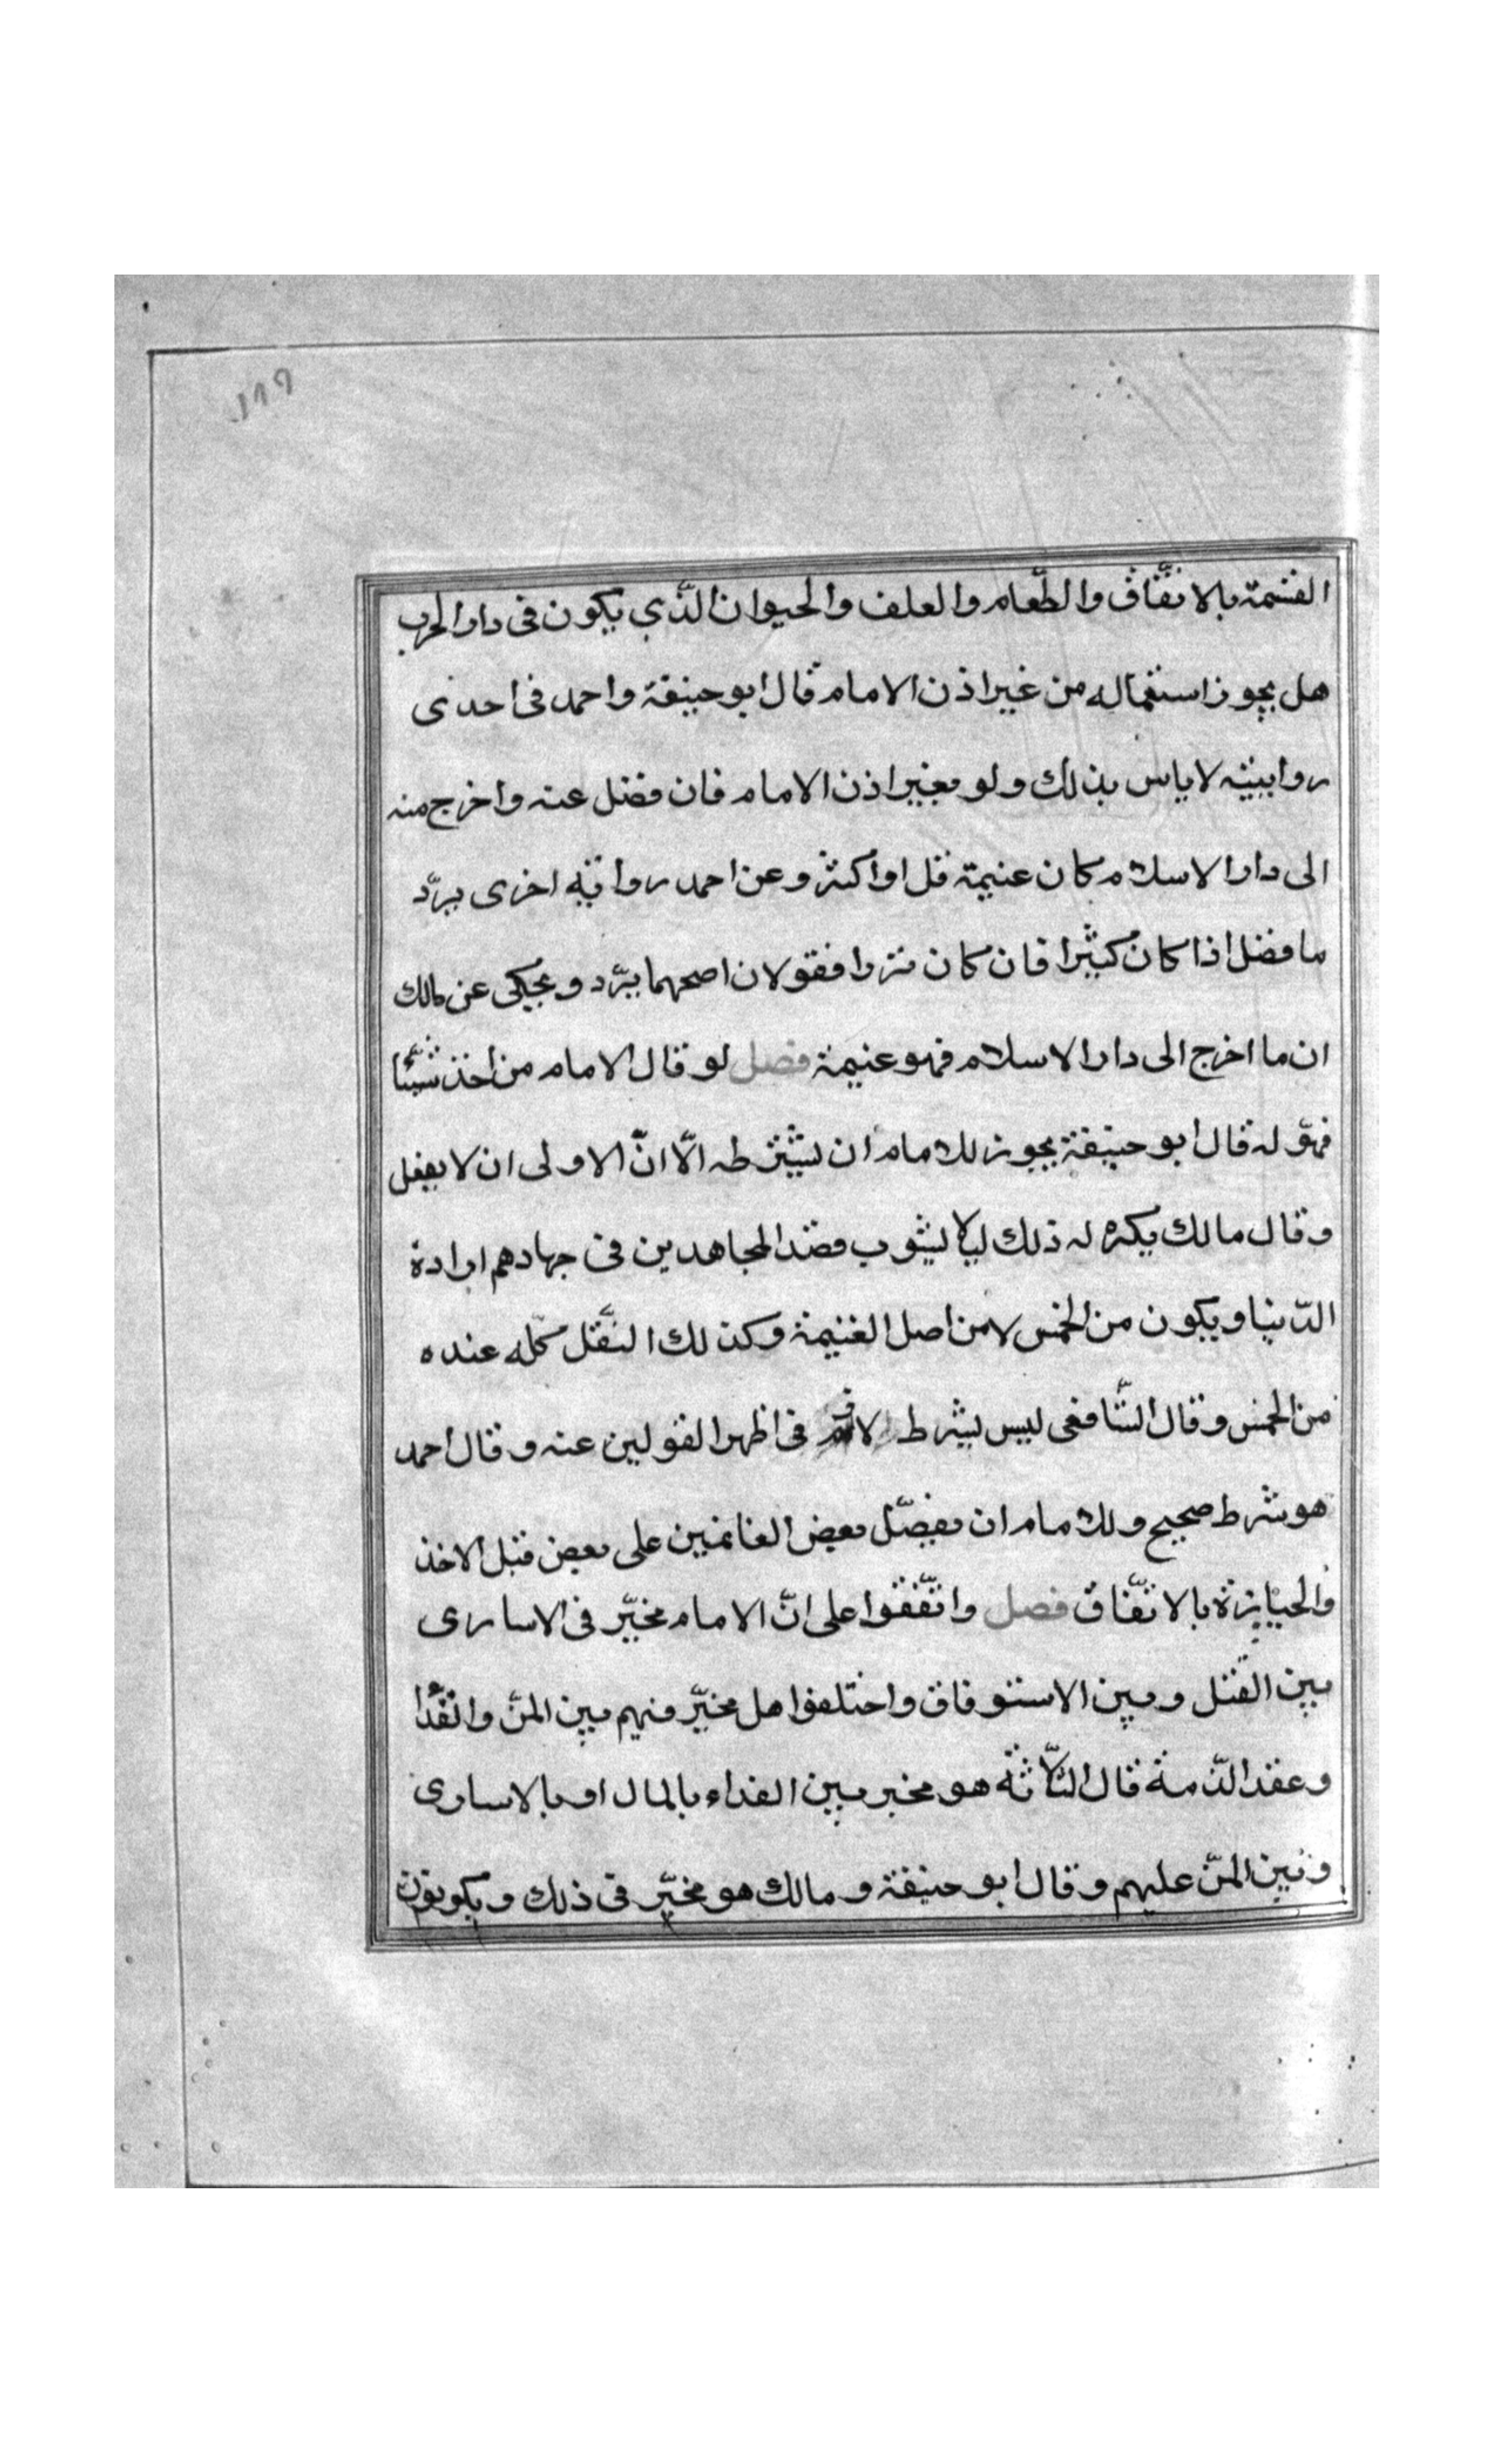 ١١٩
القسمة بالاتفاق والطّعام والعلف والحيوان الذّي يكون فى دار الحرب
هل يجوز استعماله من غير اذن الامام قال ابو حنيفة واحمد فى احدى
روايتيه لا باس بذلك ولو بغير اذن الامام فان فضل عنه واخرج منه
الى دار الاسلام كان غنيمة قل او اكثر وعن احمد رواية اخرى يردّ
ما فضل اذا كان كثيرا فان كان نزرا فقولان اصحهما يردّ ويحكى عن مالك
ان ما اخرج الى دار الاسلام فهو غنيمة فصل لو قال الامام من اخذ شيئا
فهو له قال ابو حنيفة يجوز للامام ان يشترطه الّا انّ الاولى ان لا يفعل
وقال مالك يكره له ذلك ليلا يشوب قصد المجاهدين فى جهادهم ارادة
الدّنيا ويكون من الخمس لا من اصل الغنيمة وكذلك النفل كلّه عنده
من الخمس وقال الشّافعى ليس بشرط لازم فى اظهر القولين عنه وقال احمد
هو شرط صحيح وللامام ان يفضّل بعض الغانمين على بعض قبل الاخذ
والحيازة بالاتّفاق فصل واتّفقوا على انّ الامام مخيّر فى الاسارى
بين القتل وبين الاسترقاق واختلفوا هل مخيّر فيهم بين المنّ والفدا
وعقد الذّمة قال الثّلاثة هو مخير بين الفداء بالمال او بالاسارى
وبين المنّ عليهم وقال ابو حنيفة ومالك هو مخيّر فى ذلك ويكونون